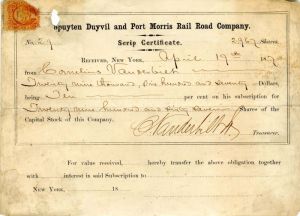 Spuyten Duyvil and Port Morris Rail Road Company.
Scrip Certificate.
No. 29 2967 Shares
Received, New York, April 19th 187
from Cornelius Vanderbilt
Twenty nine thousand, six hundred and seventy Dollars,
being Ten per cent on his subscription for
Twenty nine hundred and sixty seven Shares of the
Capital Stock of this Company.
C Vanderbilt Jr
Treasurer.
For value received, hereby transfer the above obligation together
with interest in said Subscription to
New York, 18